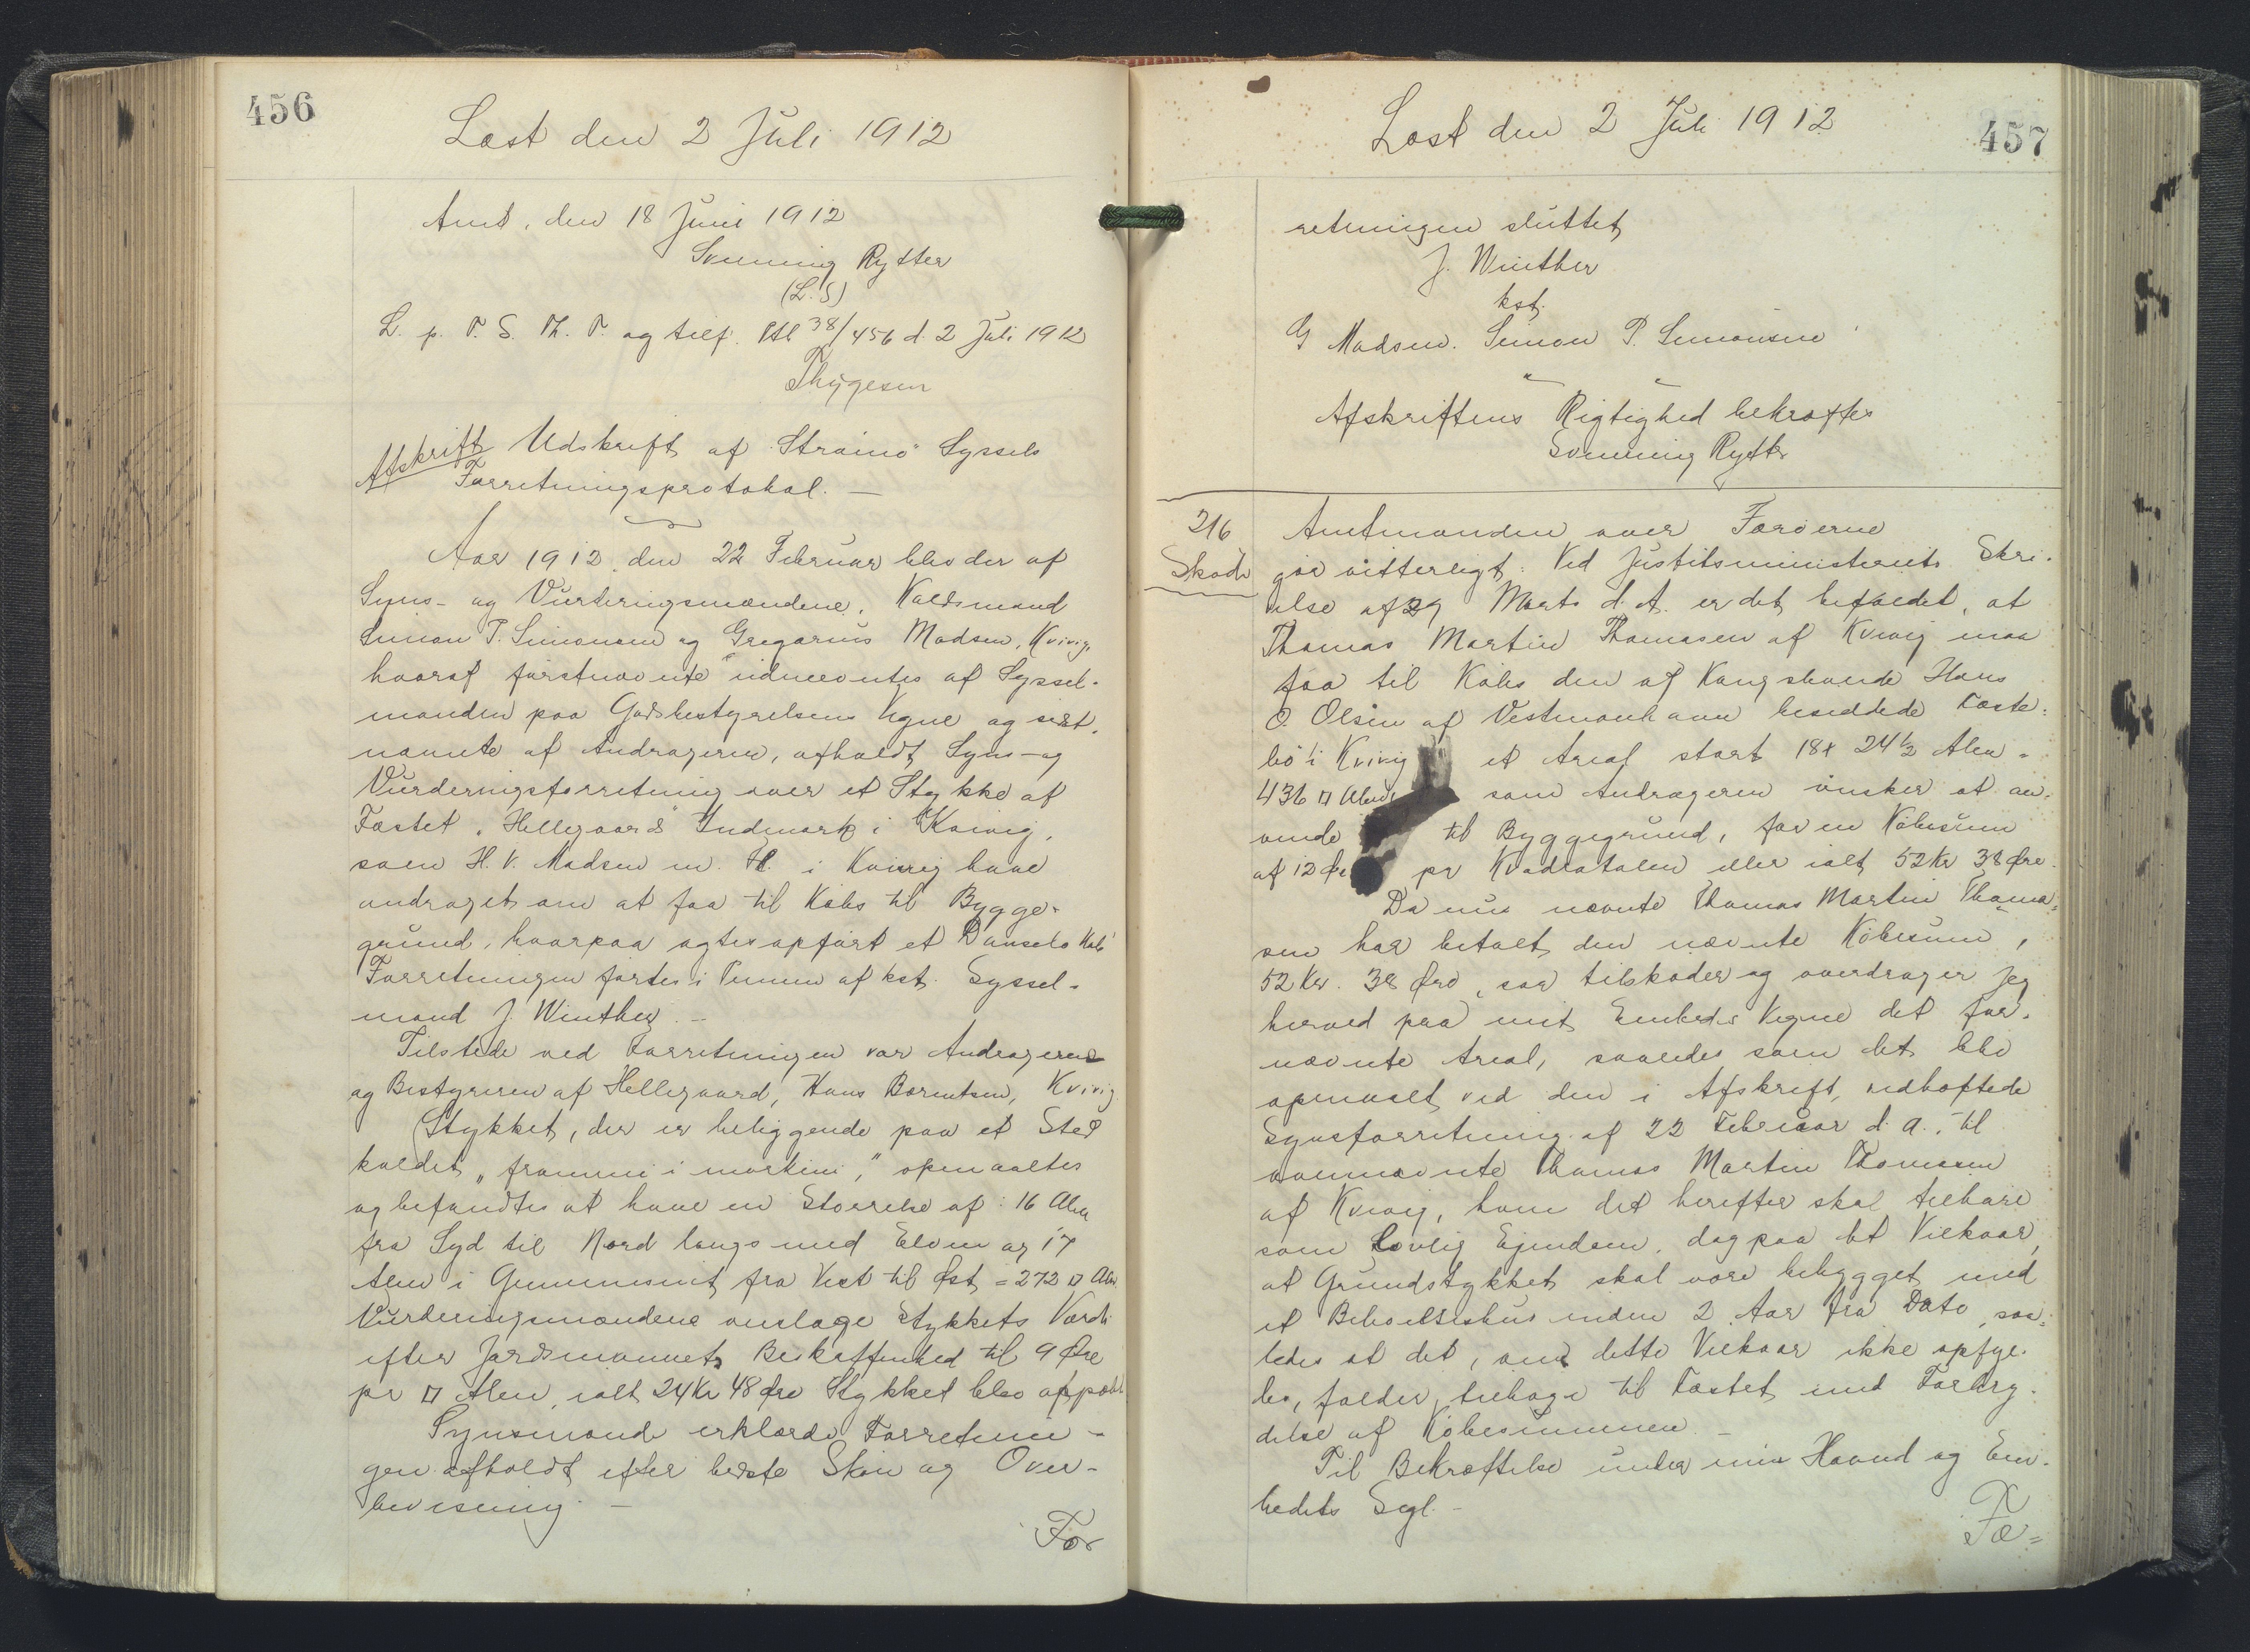 456
Læst den 2 Juli 1912
Amt, den 18 Juni 1912
Svenning Rytter
(L.S)
L. p. T. S. Th. T. og tilf. Ptl 38/456 d. 2 Juli 1912
Thygesen
Afskrift
Udskrift af Strømø Syssels
Forretningsprotokol. —
Aar 1912, den 22 Februar blev der af
Syns- og Vurderingsmændene, Kaldsmand
Simon P. Simonsen og Gregorius Madsen, Kvivig,
hvoraf førstnævnte udmeldtes af Syssel-
manden paa Godsbestyrelsens Vegne og sidst-
nævnte af Andrageren, afholdt Syns- og
Vurderingsforretning over et Stykke af
Fæstet „Hellegaard" Indmark i Kvivig,
som H. V. Madsen m. Fl. i Kvivig have
andraget om at faa til Købs til Bygge-
grund, hvorpaa agtes opført et Danselokale
Forretningen førtes i Pennen af kst. Syssel-
mand J. Winther. —
Tilstede ved Forretningen var Andragerne
og Bestyreren af Hellegaard, Hans Borentsen, Kvivig
Stykket, der er beliggende paa et Sted
kaldet „frammi i morkini," opmaaltes
og befandtes at have en Størrelse af: 16 Alen
fra Syd til Nord langs med Elven og 17
Alen i Gennemsnit fra Vest til Øst = 272 □ Alen
Vurderingsmændene anslage Stykkets Værdi
efter Jordsmonnets Beskaffenhed til 9 Øre
pr □ Alen, ialt 24 Kr 48 Øre Stykket blev afpælet
Synsmænde erklærde Forretnin-
gen afholdt efter bedste Skøn og Over-
bevisning. —
For
457
Læst den 2 Juli 1912
retningen sluttet
J. Winther
kst.
G Madsen. Simon P. Simonsen
Afskriftens Rigtighed bekræftes
Svenning Rytter
216
Skøde
Amtmanden over Færøerne
gør vitterligt: Ved Justitsministeriets Skri-
velse af 29 Marts d. A. er det befalet, at
Thomas Martin Thomasen af Kvivig maa
faa til Købs den af Kongsbonde Hans
O. Olsen af Vestmanhavn besiddede Fæste-
bø i Kvivig et Areal stort 18 x 24½ Alen =
436 □ Alen som Andrageren ønsker at an-
vende til Byggegrund, for en Købesum
af 12 Øre pr Kvadratalen eller ialt 52 Kr 38 Øre.
Da nu nævnte Thomas Martin Thoma-
sen har betalt den nævnte Købesum,
52 Kr. 38 Øre, saa tilskøder og overdrager jeg
herved paa mit Embeds Vegne det for-
nævnte Areal, saaledes som det blev
opmaalt ved den i Afskrift vedhæftede
Synsforretning af 22 Februar d. A., til
ovennævnte Thomas Martin Thomasen
af Kvivig, ham det herefter skal tilhøre
som lovlig Ejendom, dog paa det Vilkaar,
at Grundstykket skal være bebygget med
et Beboelseshus inden 2 Aar fra Dato, saa-
ledes at det, om dette Vilkaar ikke opfyl-
des, falder tilbage til Fæstet mod Forbry-
delse af Købesummen. —
Til Bekræftelse under min Haand og Em-
bedets Segl. —
Fæ=